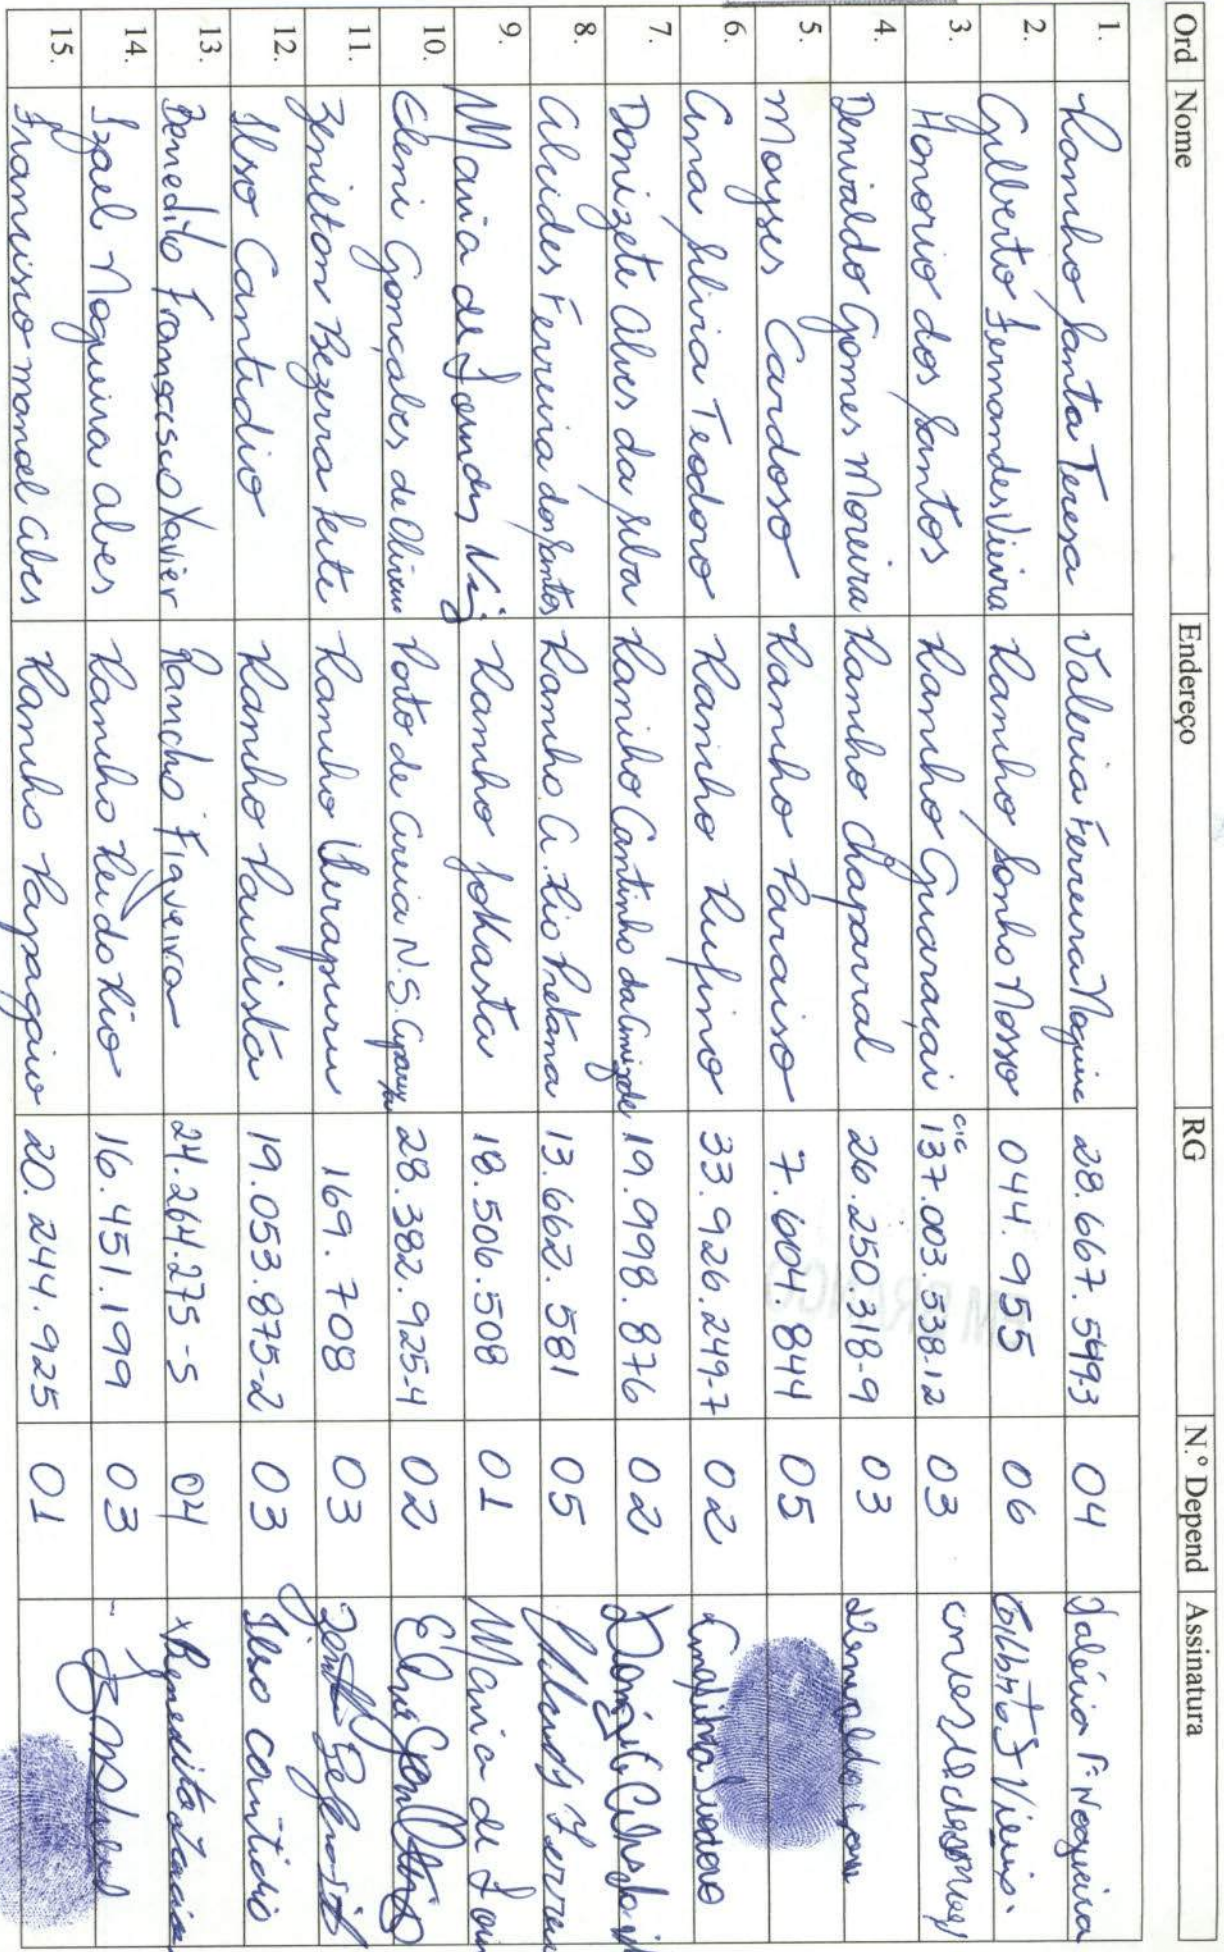 Ord Nome Endereço RG N.º Depend Assinatura
1. Rancho Santa Teresa Valeria Ferreira Nogueir 28.667.549-3 04 Valéria F. Nogueira
2. Gilberto Fernandes Vieira Rancho Sonho Nosso 044.955 06 Vieira
3. Honorio dos Santos Rancho Guaraçai cic 137.003.538-12 03
4. Denivaldo Gomes Moreira Rancho Chaparral 26.250.318-9 03
5. Moyses Cardoso Rancho Paraiso 7.604.844 05
6. Ana Silvia Teodoro Rancho Rufino 33.926.249-7 02
7. Donizete Alves da Silva Rancho Cantinho da Amizade 19.998.876 02
8. Alcides Ferreira dos Santos Rancho A. Rio Pretana 13.662.581 05
9. Maria de Rancho Jokasta 18.506.508 01 Maria de
10. Eleni Gonçalves de Oliveira Porto de Areia N.S. 28.382.925-4 02
11. Zenilton Bezerra Leite Rancho Uirapuru 169.708 03
12. Ilso Cantidio Rancho Paulista 19.053.875-2 03 Ilso Cantidio
13. Benedito Francisco Xavier Rancho Figueira 24.264.275-5 04 x Benedito
14. Izael Nogueira Alves Rancho Rei do Rio 16.451.199 03
15. Francisco manoel Alves Rancho Papagaio 20.244.925 01
EM BRANCO